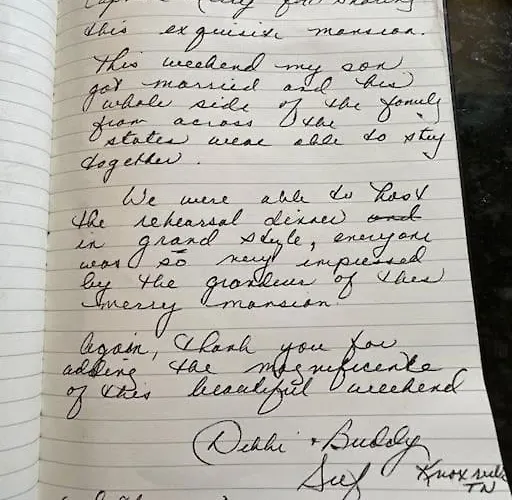 for sharing
this exquisite mansion.
This weekend my son
got married and his
whole side of the family
from across the
states were able to stay
together.
We were able to host
the rehearsal dinner and
in grand style, everyone
was so very impressed
by the grandeur of this
merry mansion.
Again, thank you for
adding the magnificence
of this beautiful weekend
Debbi + Buddy
Knoxville
TN